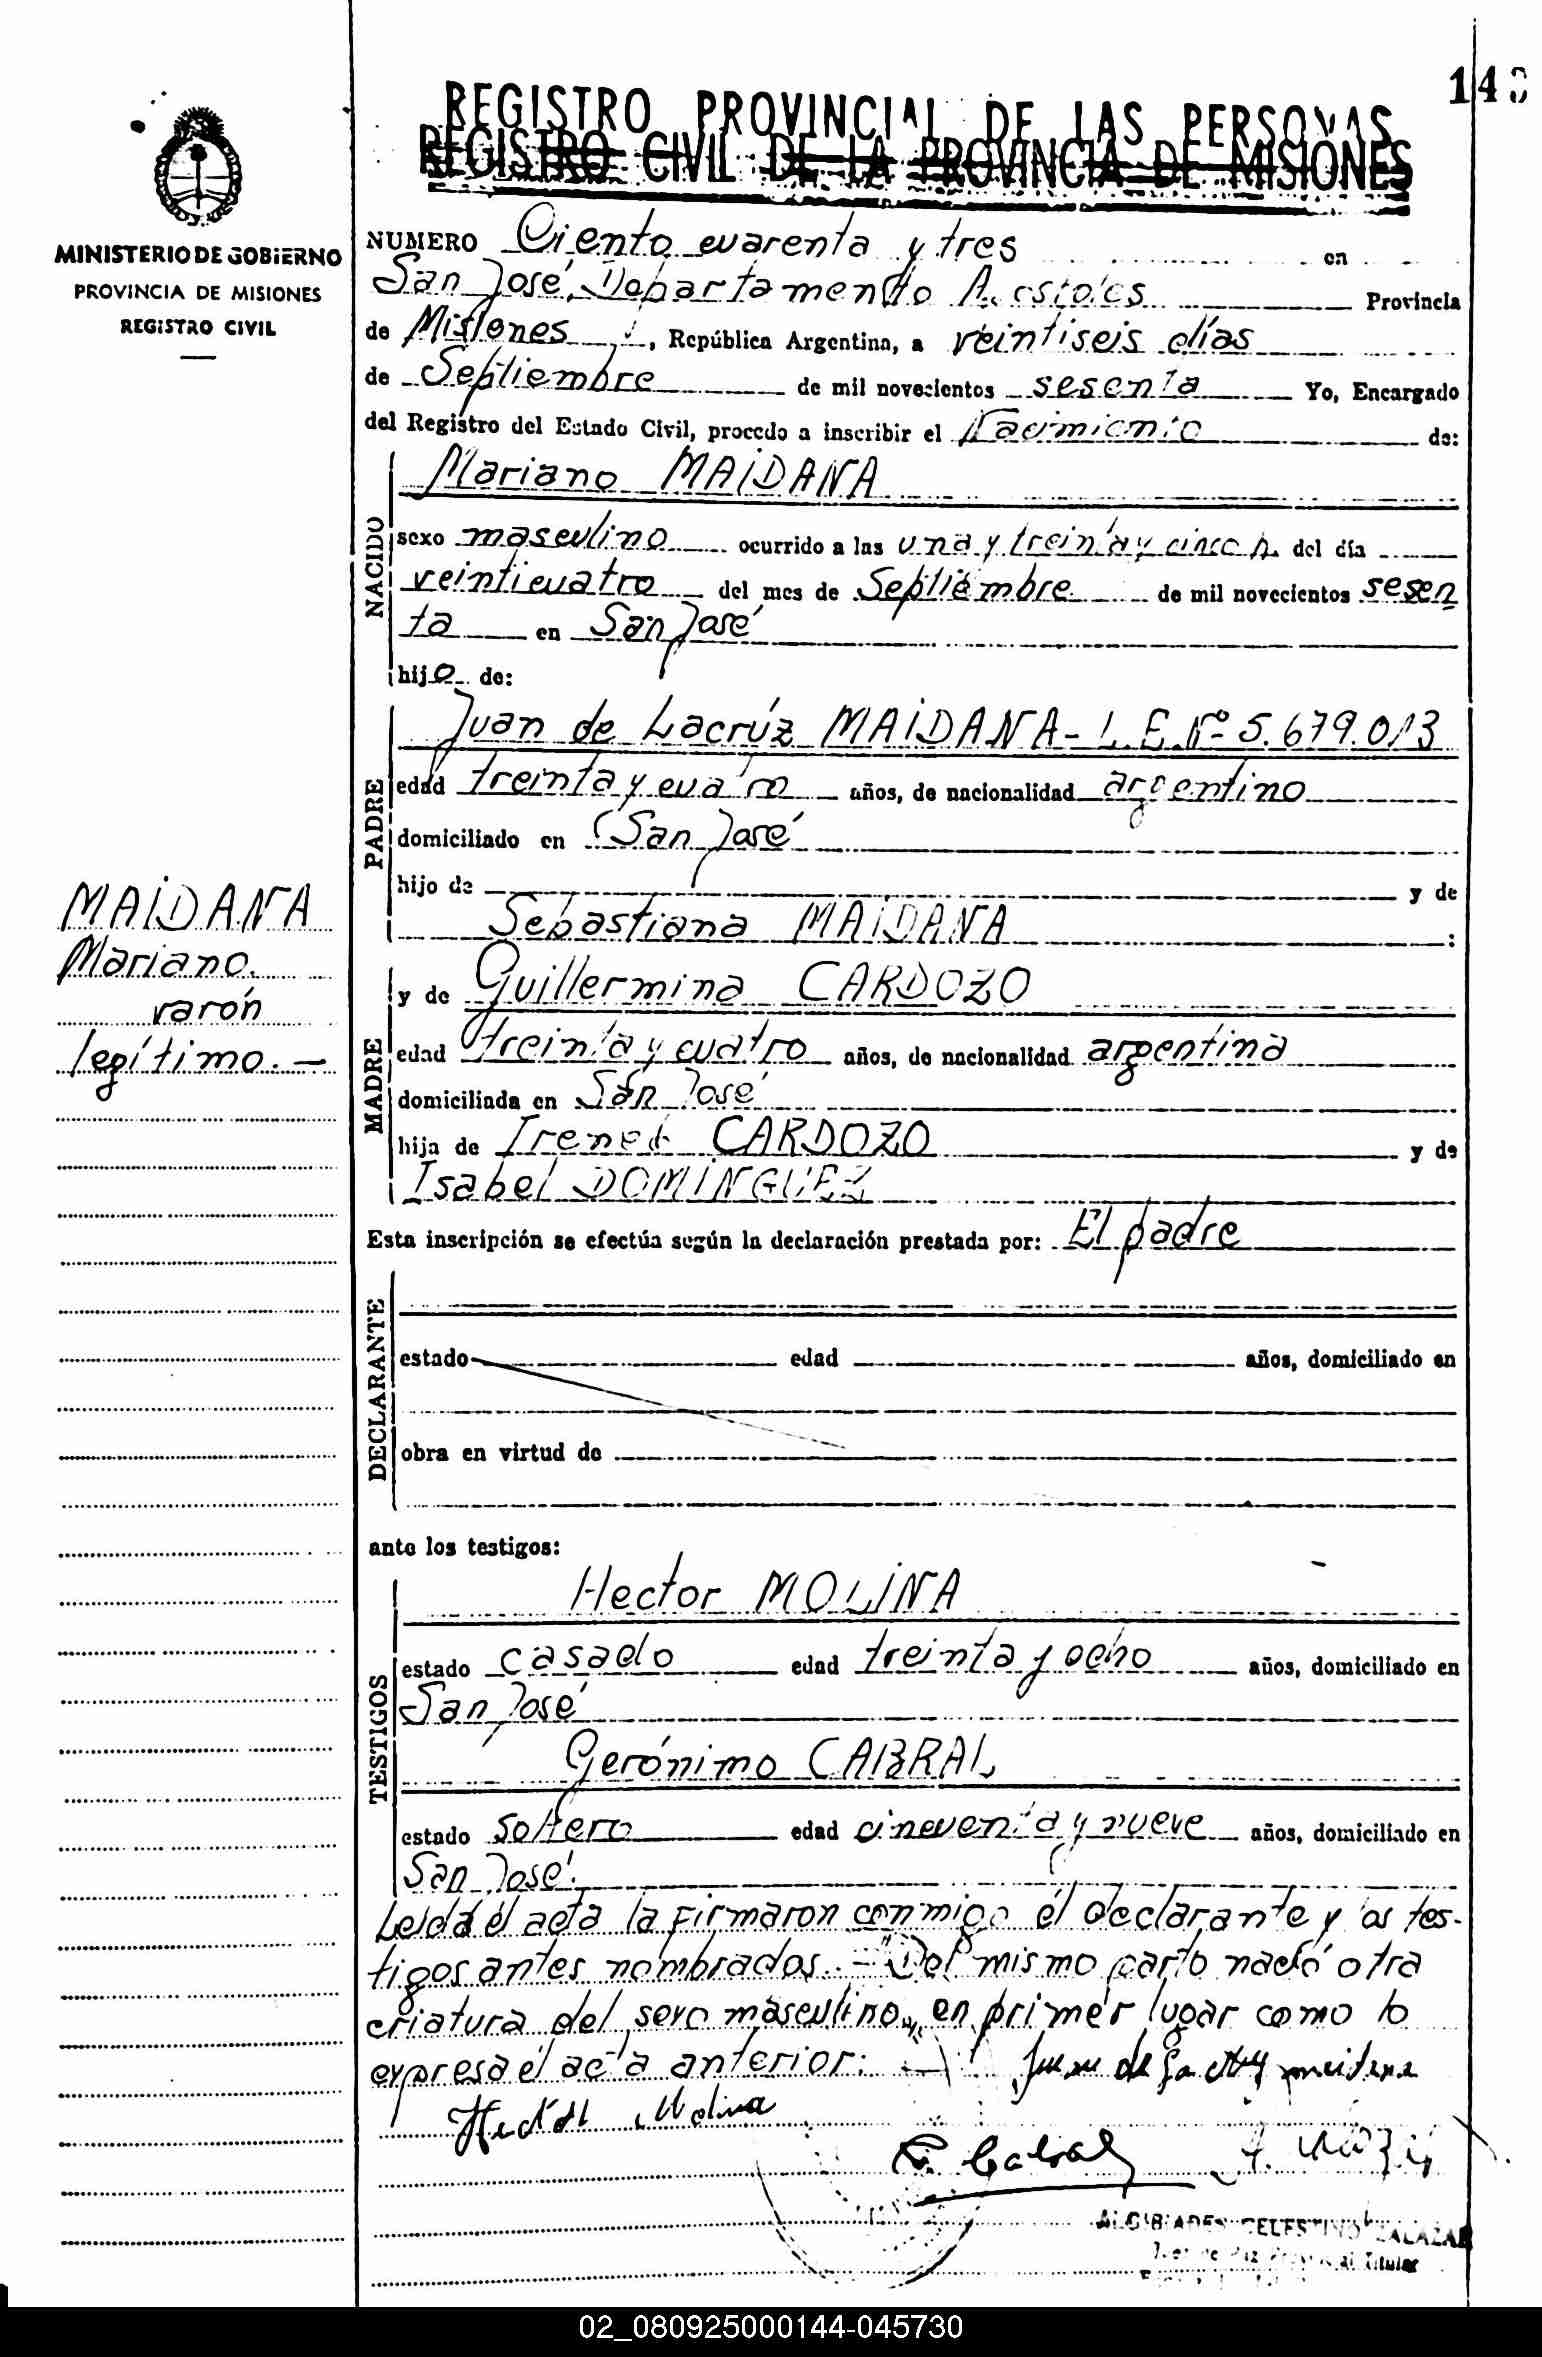 143
REGISTRO PROVINCIAL DE LAS PERSONAS
REGISTRO CIVIL DE LA PROVINCIA DE MISIONES
MINISTERIO DE GOBIERNO
PROVINCIA DE MISIONES
REGISTRO CIVIL
NUMERO Ciento cuarenta y tres en
San José, Departamento Apóstoles Provincia
de Misiones, República Argentina, a veintiseis días
de Septiembre de mil novecientos sesenta Yo, Encargado
del Registro del Estado Civil, procedo a inscribir el Nacimiento de:
NACIDO
Mariano MAIDANA
sexo masculino ocurrido a las una y treinta y cinco h. del día
veinticuatro del mes de Septiembre de mil novecientos sesen
ta en San José
hijo de:
PADRE
Juan de Lacrúz MAIDANA - L.E. Nº 5.679.013
edad treinta y cuatro años, de nacionalidad argentino
domiciliado en San José
hijo de y de
Sebastiana MAIDANA :
MAIDANA
Mariano.
varón
legítimo. —
MADRE
y de Guillermina CARDOZO
edad treinta y cuatro años, de nacionalidad argentina
domiciliada en San José
hija de CARDOZO y de
Isabel DOMINGUEZ
Esta inscripción se efectúa según la declaración prestada por: El padre
DECLARANTE
estado edad años, domiciliado en
obra en virtud de
ante los testigos:
TESTIGOS
Hector MOLINA
estado casado edad treinta y ocho años, domiciliado en
San José
Gerónimo CABRAL
estado soltero edad cincuenta y nueve años, domiciliado en
San José.
Leida él acta la firmaron conmigo él declarante y los tes-
tigos antes nombrados. - Del mismo parto nació otra
criatura del sexo masculino, en primer lugar como lo
expresa él acta anterior:
Hector Molina
G. Cabral
ALCIBIADES CELESTINO ZALAZAR
Juez de Paz Titular
02_080925000144-045730